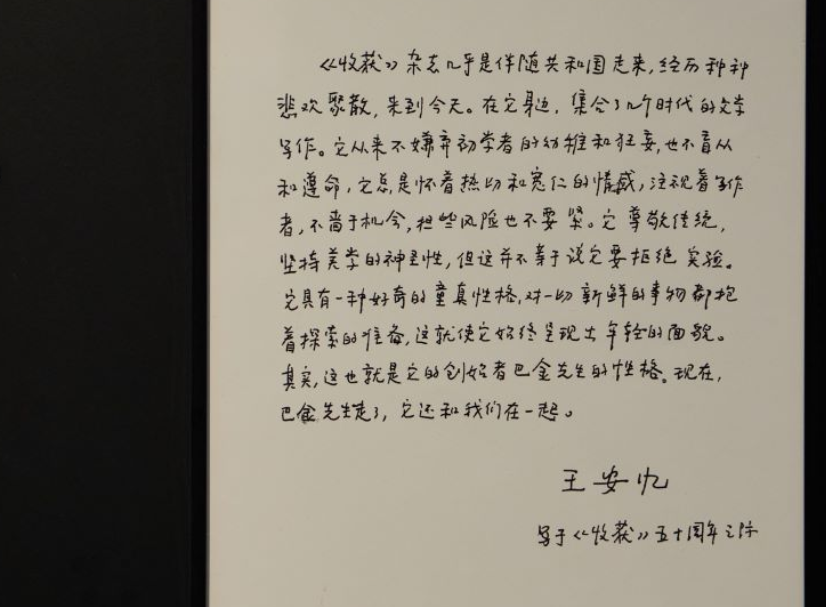 《收获》杂志几乎是伴随共和国走来,经历种种
悲欢聚散,来到今天。在它身边,集合了几个时代的文学
写作。它从来不嫌弃初学者的幼稚和狂妄,也不盲从
和遵命,它总是怀着热切和宽仁的情感,注视着写作
者,不啬于机会,担些风险也不要紧。它尊敬传统,
坚持美学的神圣性,但这并不等于说它要拒绝实验。
它具有一种好奇的童真性格,对一切新鲜的事物都抱
着探索的准备,这就使它始终呈现出年轻的面貌。
其实,这也就是它的创始者巴金先生的性格。现在,
巴金先生走了,它还和我们在一起。
王安忆
写于《收获》五十周年之际